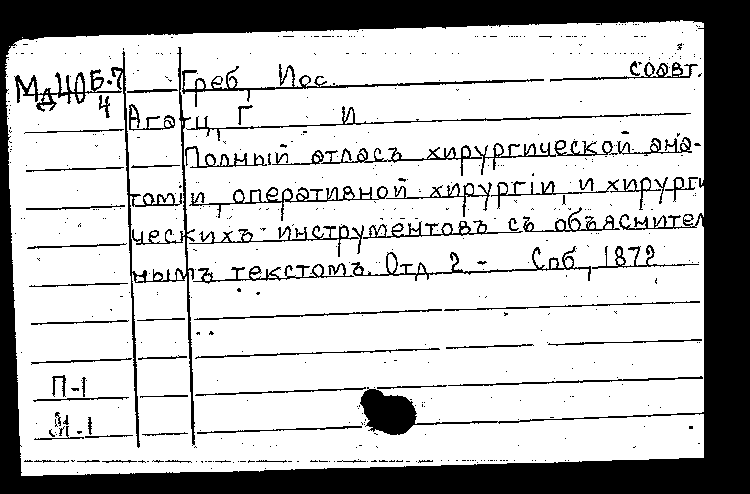 Мд40 Б-7/4 Греб, Иос. соавт.
Агатц, Г и
Полный атласъ хирургической ана-
томіи, оперативной хирургіи, и хирурги
ческихъ инструментовъ съ объяснител
нымъ текстомъ. Отд 2 - Спб, 1872
П-1
М-1